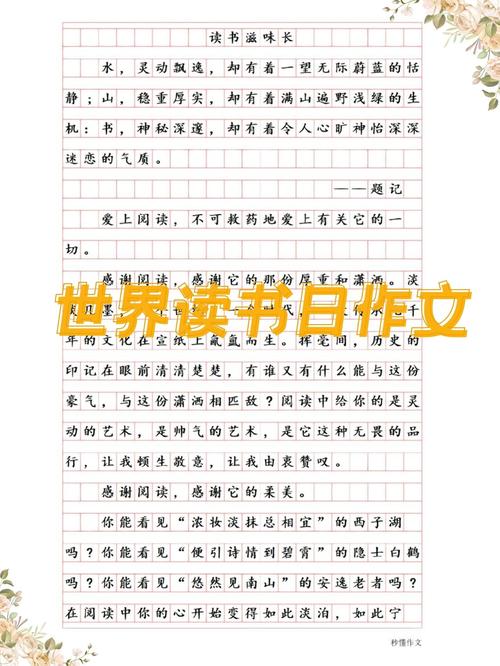 读书滋味长
水，灵动飘逸，却有着一望无际蔚蓝的恬
静；山，稳重厚实，却有着满山遍野浅绿的生
机：书，神秘深邃，却有着令人心旷神怡深深
迷恋的气质。
——题记
爱上阅读，不可救药地爱上有关它的一
切。
感谢阅读，感谢它的那份厚重和潇洒。淡
世界读书日作文
年的文化在宣纸上氤氲而生。挥毫间，历史的
印记在眼前清清楚楚，有谁又有什么能与这份
豪气，与这份潇洒相匹敌？阅读中给你的是灵
动的艺术，是帅气的艺术，是它这种无畏的品
行，让我顿生敬意，让我由衷赞叹。
感谢阅读，感谢它的柔美。
你能看见“浓妆淡抹总相宜”的西子湖
吗？你能看见“便引诗情到碧霄”的隐士白鹤
吗？你能看见“悠然见南山”的安逸老者吗？
在阅读中你的心开始变得如此淡泊，如此宁
秒懂作文